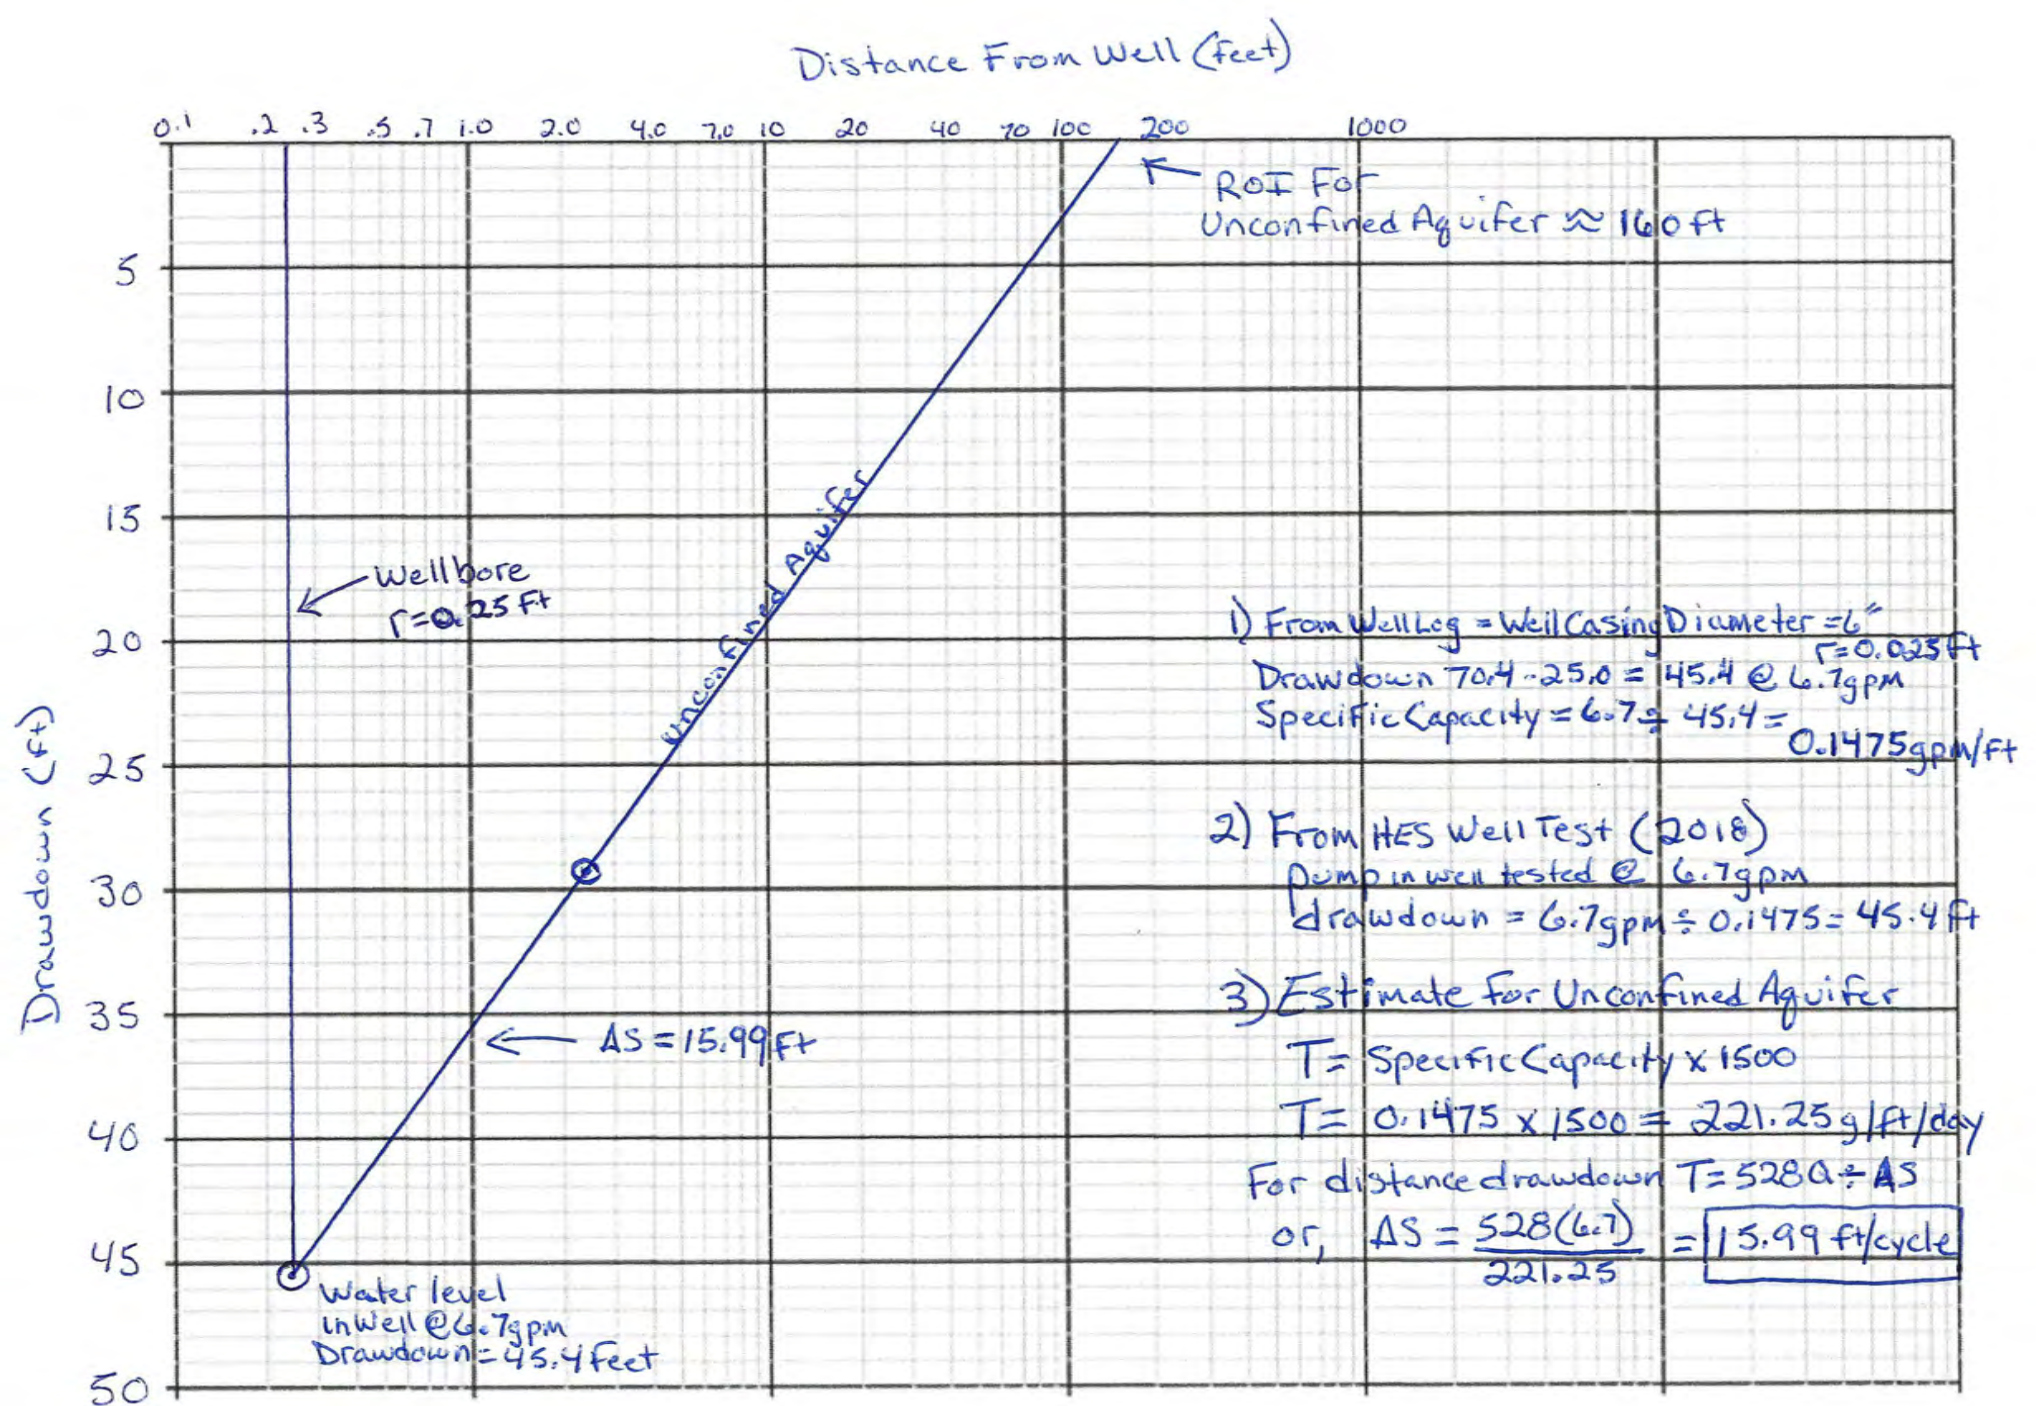 Distance From Well (feet)
0.1 .2 .3 .5 .7 1.0 2.0 4.0 7.0 10 20 40 70 100 200 1000
ROI For
Unconfined Aquifer ≈ 160 ft
5
10
15
20
25
30
35
40
45
50
Drawdown (ft)
Wellbore
r=0.25 ft
Unconfined Aquifer
ΔS = 15.99 ft
Water level
in Well @ 6.7gpm
Drawdown = 45.4 feet
1) From Well Log = Well Casing Diameter = 6"
r=0.025 ft
Drawdown 70.4 - 25.0 = 45.4 @ 6.7gpm
Specific Capacity = 6.7 ÷ 45.4 =
0.1475 gpm/ft
2) From HES Well Test (2018)
pump in well tested @ 6.7gpm
drawdown = 6.7gpm ÷ 0.1475 = 45.4 ft
3) Estimate for Unconfined Aquifer
T = Specific Capacity x 1500
T = 0.1475 x 1500 = 221.25 g/ft/day
For distance drawdown T = 528Q ÷ ΔS
or, ΔS = 528(6.7) = 15.99 ft/cycle
221.25